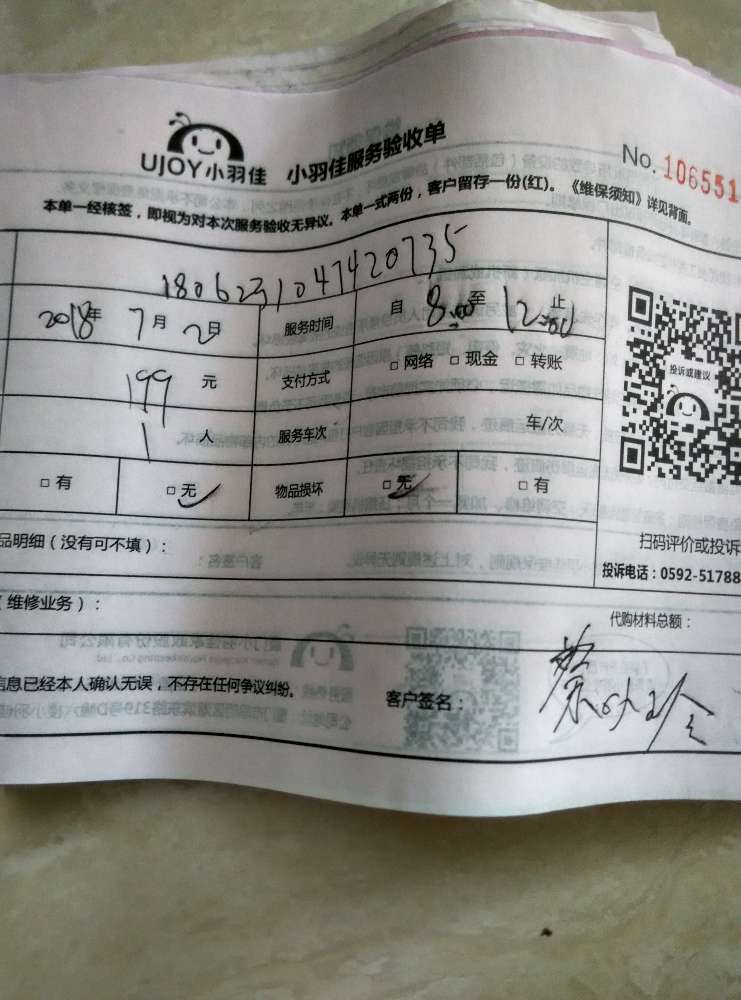 UJOY小羽佳 小羽佳服务验收单
No. 106551
本单一经核签，即视为对本次服务验收无异议。本单一式两份，客户留存一份(红)。《维保须知》详见背面。
1806231047420735
2018年 7月 2日 服务时间 自 8:00至 12:00止
199 元 支付方式 □ 网络 □ 现金 □ 转账
1 人 服务车次 车/次
□ 有 □ 无 物品损坏 □ 无 □ 有
投诉或建议
品明细（没有可不填）：
扫码评价或投诉
投诉电话：0592-51788
（维修业务）：
代购材料总额：
信息已经本人确认无误，不存在任何争议纠纷。 客户签名：